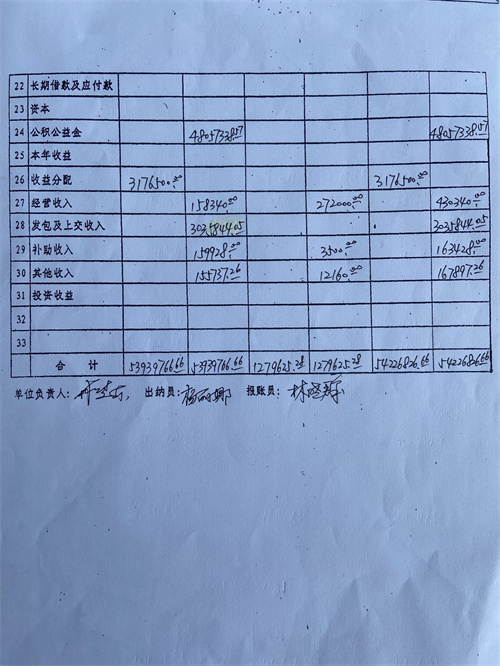 22 长期借款及应付款
23 资本
24 公积公益金 48057338.57 48057338.57
25 本年收益
26 收益分配 3176500.00 3176500.00
27 经营收入 158340.00 272000.00 430340.00
28 发包及上交收入 3035844.05 3035844.05
29 补助收入 159928.00 3500.00 163428.00
30 其他收入 155737.26 12160.00 167897.26
31 投资收益
32
33
合计 53939766.66 53939766.66 1279625.28 1279625.28 54226826.66 54226826.66
单位负责人： 出纳员：杨丽娜 报账员：